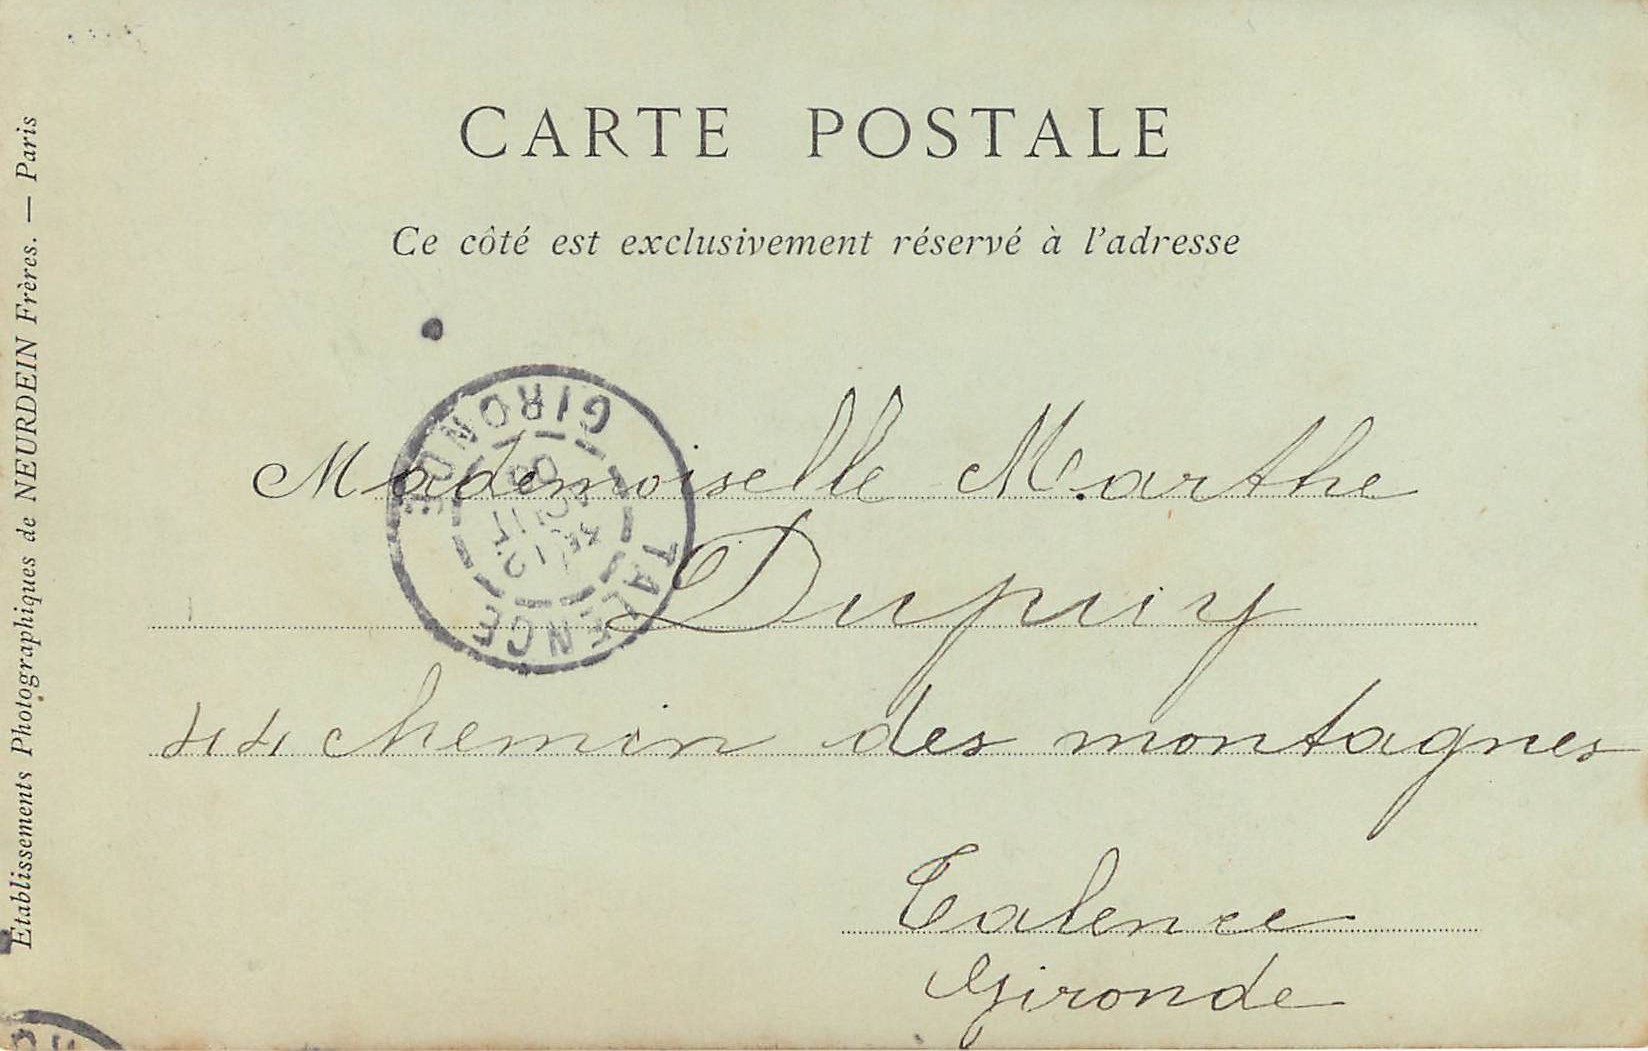 CARTE POSTALE
Ce côté est exclusivement réservé à l'adresse
Mademoiselle Marthe
Dupuy
44 chemin des montagnes
Talence
Gironde
TALENCE
GIRONDE
Etablissements Photographiques de NEURDEIN Frères. — Paris